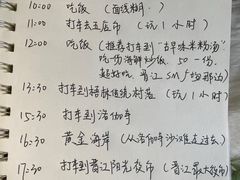 10:00 吃饭(面线糊.)
11:00 打车去五店市(玩1小时)
12:00 吃饭(推荐打车到"古早味米粉汤"
吃一份海鲜炒饭 50一份.
超好吃. 晋江SM广场那边)
13:30 打车到梧林传统村落(玩1小时)
15:30 打车到洛伽寺
16:30 黄金海岸(从洛伽寺沙滩走过去)
17:30 打车到晋江阳光夜市(晋江最大夜市)